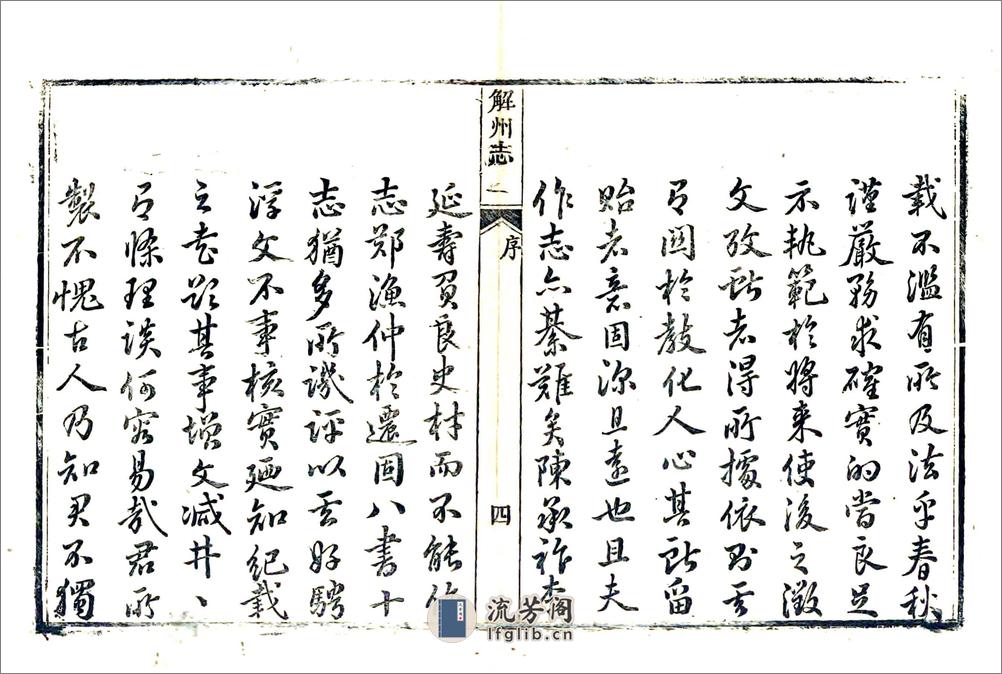 載不濫有所及法乎春秋
謹嚴務求確實的當良足
示執範於將来使後之徵
文攷獻者得所據依
有関於教化人心其所留
貽者意固深且遠也且夫
作志亦綦難矣陳承祚李
解州志
序
四
延壽負良史材而不能作
志鄭漁仲於遷固八書十
志猶多所譏評以云好騁
浮文不事核實廼知紀載
之書難其事增文減井ヽ
有條理談何容易哉君所
製不愧古人乃知君不獨
流芳阁
lfglib.cn